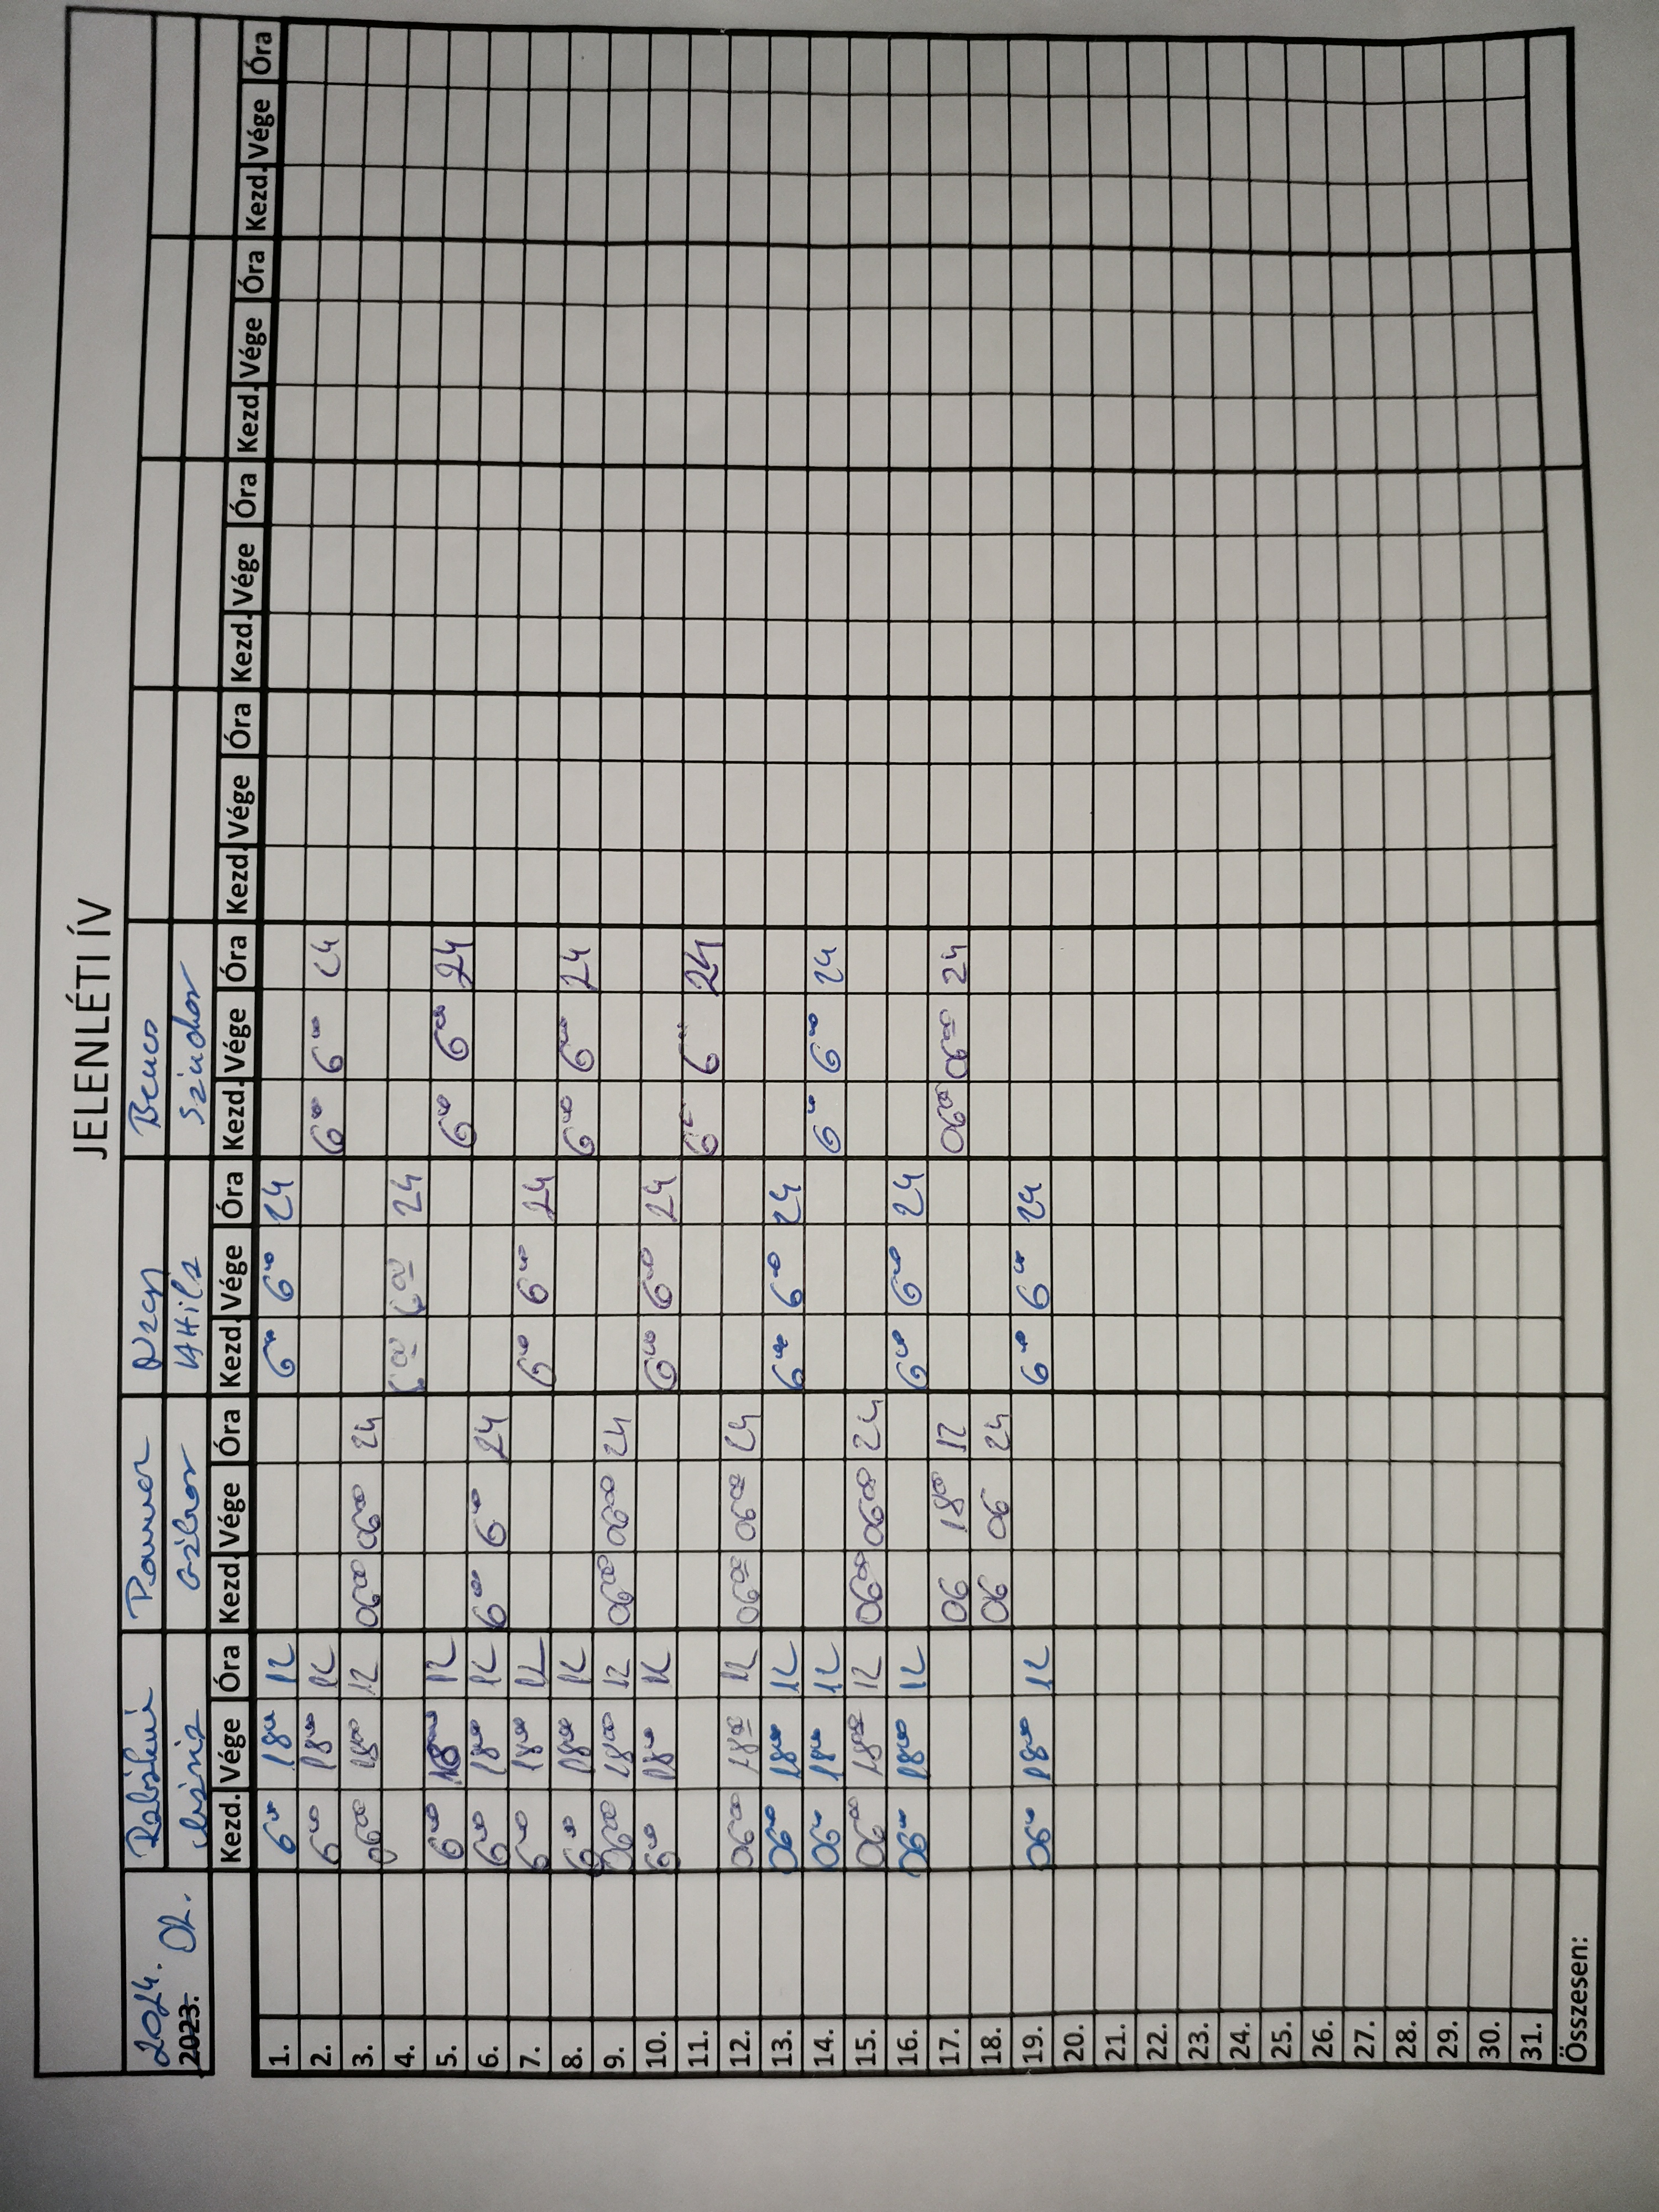 JELENLÉTI ÍV
2024. Bence
2023. 02. Gábor Attila Sándor
Kezd. Vége Óra Kezd. Vége Óra Kezd. Vége Óra Kezd. Vége Óra Kezd. Vége Óra Kezd. Vége Óra Kezd. Vége Óra Kezd. Vége Óra
1. 6⁰⁰ 18⁰⁰ 12 6⁰⁰ 6⁰⁰ 24
2. 6⁰⁰ 18⁰⁰ 12 6⁰⁰ 6⁰⁰ 24
3. 06⁰⁰ 18⁰⁰ 12 06⁰⁰ 06⁰⁰ 24
4. 6⁰⁰ 6⁰⁰ 24
5. 6⁰⁰ 18⁰⁰ 12 6⁰⁰ 6⁰⁰ 24
6. 6⁰⁰ 18⁰⁰ 12 6⁰⁰ 6⁰⁰ 24
7. 6⁰⁰ 18⁰⁰ 12 6⁰⁰ 6⁰⁰ 24
8. 6⁰⁰ 18⁰⁰ 12 6⁰⁰ 6⁰⁰ 24
9. 06⁰⁰ 18⁰⁰ 12 06⁰⁰ 06⁰⁰ 24
10. 6⁰⁰ 18⁰⁰ 12 6⁰⁰ 6⁰⁰ 24
11. 6⁰⁰ 6⁰⁰ 24
12. 06⁰⁰ 18⁰⁰ 12 06⁰⁰ 06⁰⁰ 24
13. 06⁰⁰ 18⁰⁰ 12 6⁰⁰ 6⁰⁰ 24
14. 06⁰⁰ 18⁰⁰ 12 6⁰⁰ 6⁰⁰ 24
15. 06⁰⁰ 18⁰⁰ 12 06⁰⁰ 06⁰⁰ 24
16. 06⁰⁰ 18⁰⁰ 12 6⁰⁰ 6⁰⁰ 24
17. 06 18⁰⁰ 12 06⁰⁰ 06⁰⁰ 24
18. 06 06 24
19. 06⁰⁰ 18⁰⁰ 12 6⁰⁰ 6⁰⁰ 24
20.
21.
22.
23.
24.
25.
26.
27.
28.
29.
30.
31.
Összesen: